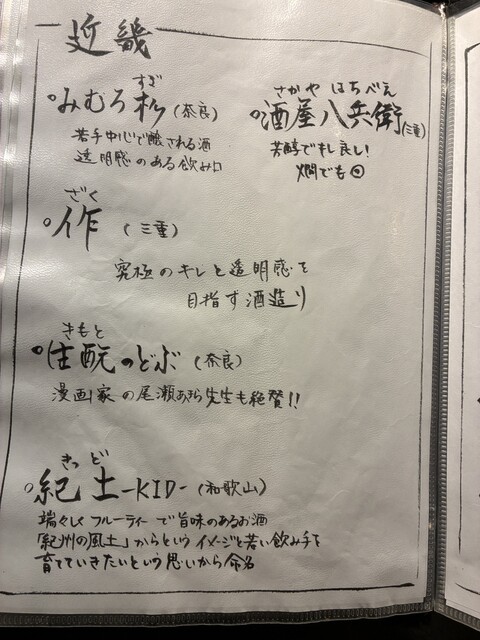 近畿
すぎ
みむろ杉(奈良)
若手中心で醸される酒
透明感のある飲み口
さかや はちべえ
酒屋八兵衛(三重)
芳醇でキレ良し!
燗でも◎
ざく
作 (三重)
究極のキレと透明感を
目指す酒造り
きもと
生酛のどぶ (奈良)
漫画家の尾瀬あきら先生も絶賛!!
きっど
紀土-KID- (和歌山)
瑞々しく フルーティーで旨味のあるお酒
「紀州の風土」からという イメージと若い飲み手を
育てていきたいという思いから命名